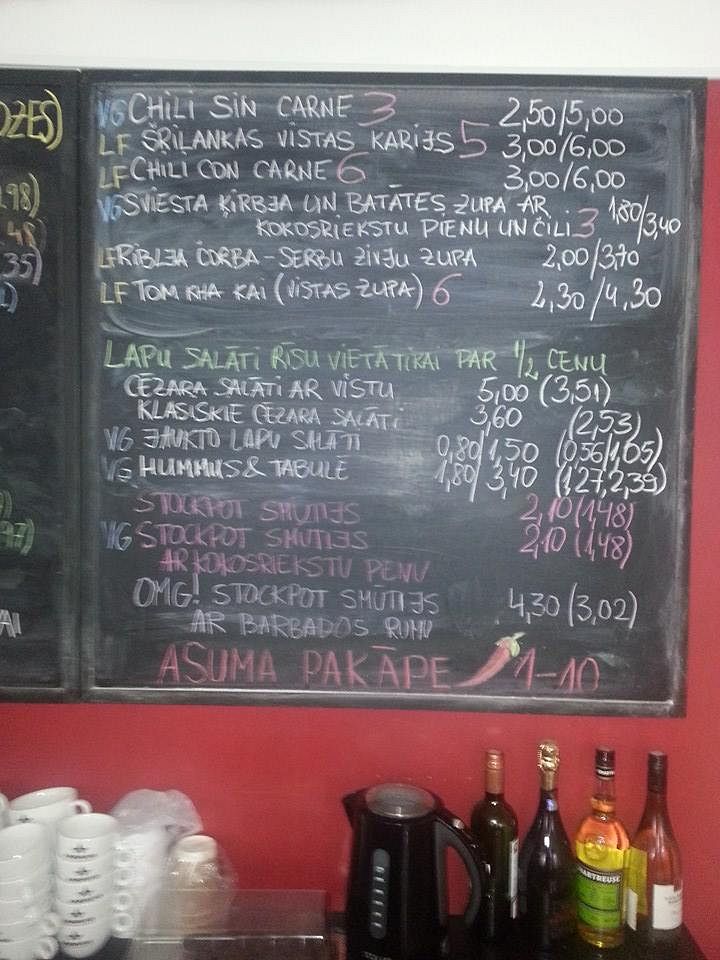 OZES)
VG CHILI SIN CARNE 3 2,50/5,00
LF ŠRILANKAS VISTAS KARIJS 5 3,00/6,00
,98)
LF CHILI CON CARNE 6 3,00/6,00
VG SVIESTA ĶIRBJA UN BATĀTES ZUPA AR 1,80/3,40
,48
KOKOSRIEKSTU PIENU UN ČILI 3
,35)
LF RIBLJA ČORBA - SERBU ZIVJU ZUPA 2,00/3,70
LF TOM KHA KAI (VISTAS ZUPA) 6 2,30/4,30
LAPU SALĀTI RĪSU VIETĀ TIKAI PAR 1/2 CENU
CĒZARA SALĀTI AR VISTU 5,00 (3,51)
KLASISKIE CĒZARA SALĀTI 3,60 (2,53)
VG JAUKTO LAPU SALĀTI 0,80/1,50 (0,56/1,05)
VG HUMMUS & TABULĒ 1,80/3,40 (1,27,2,39)
STOCKPOT SMŪTIJS 2,10 (1,48)
VG STOCKPOT SMŪTIJS 2,10 (1,48)
97)
AR KOKOSRIEKSTU PIENU
OMG! STOCKPOT SMŪTIJS 4,30 (3,02)
AR BARBADOS RUMU
AI
ASUMA PAKĀPE 1-10
CHARTREUSE